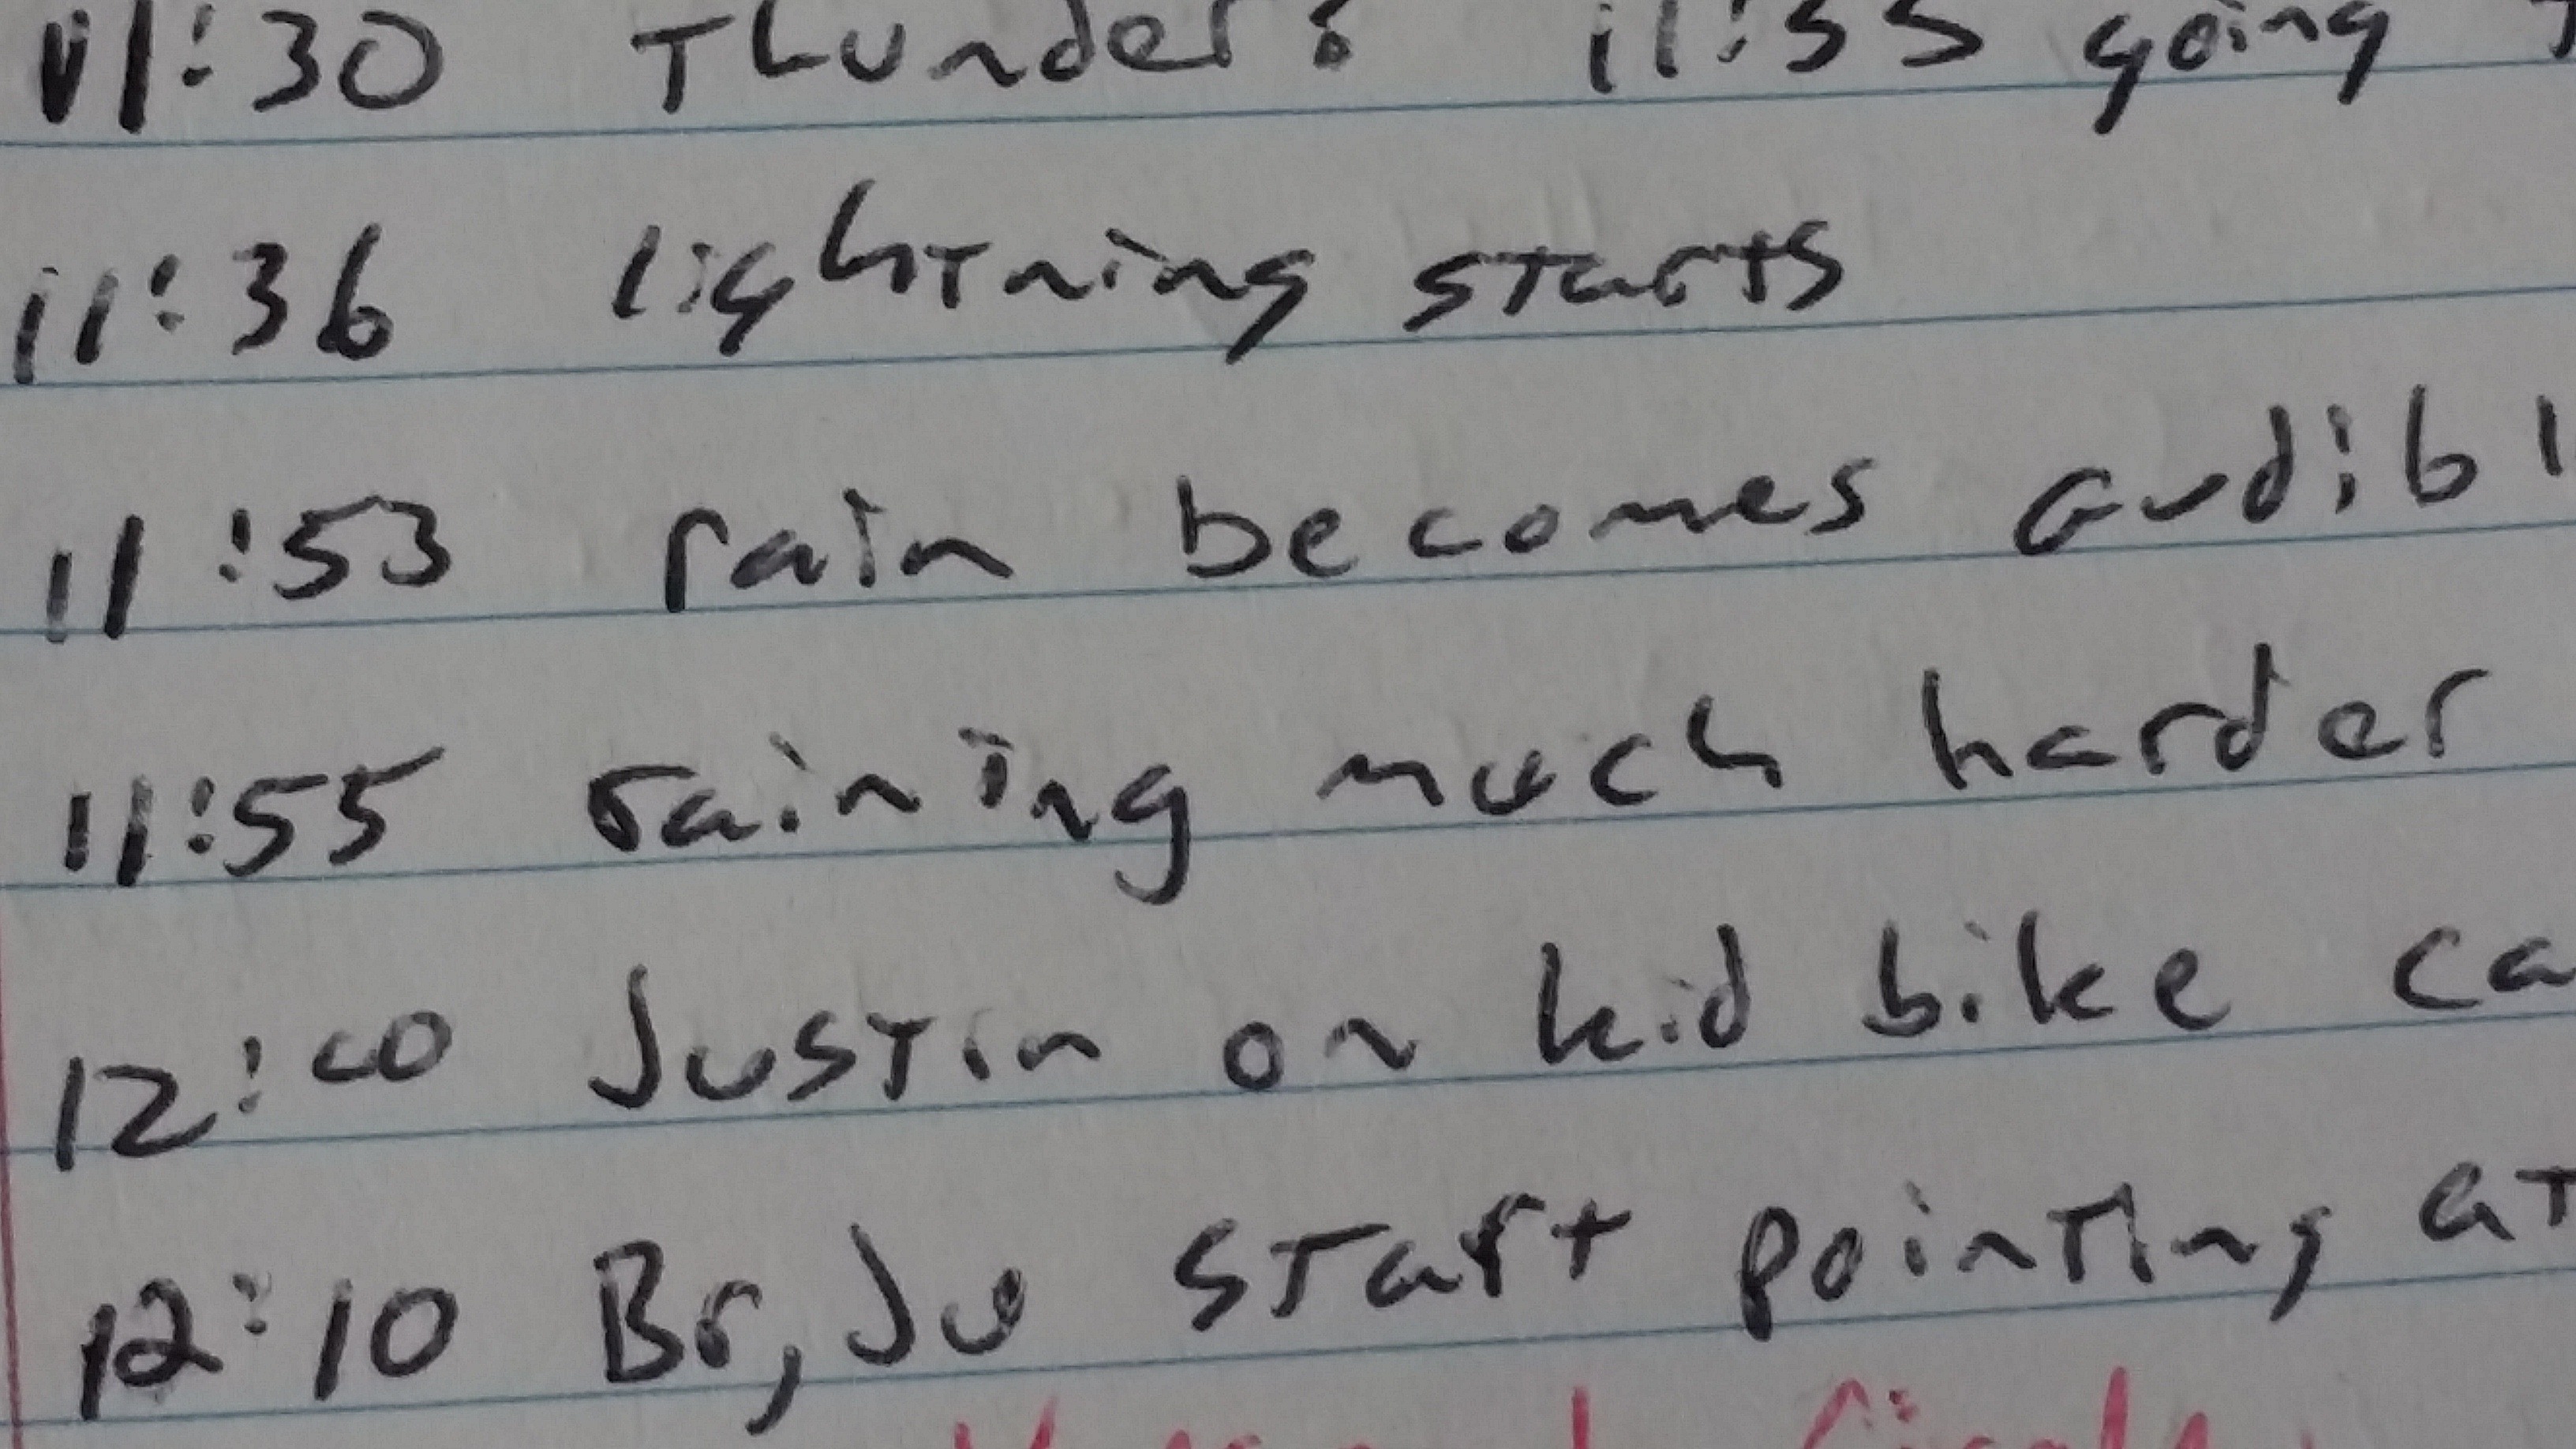 11:30 Thunder: 11:35 going
11:36 lightning starts
11:53 rain becomes audibl
11:55 raining much harder
12:00 Justin on kid bike ca
12:10 Br, Ju start pointing at